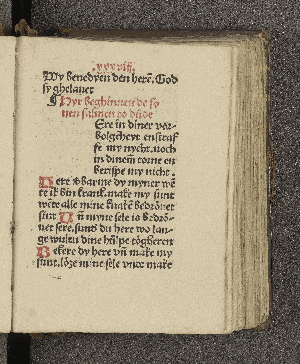 Wy benedyen den herē. God
sy ghelauet
¶ Hyr beghinnen de so
uen salmen to dude
Ere in diner vor-
bolgcheyt en straf
fe my nycht. noch
in dinem torne en
berispe my nicht.
Here vorbarme dy myner wē
te ik bin kranck. make my sunt
wēte alle mine knakē bedrouet
sint Uñ myne sele is bedrō-
uet sere. sund du here wo lan-
ge wultu dine hulpe tögheren
Bekere dy here vñ make my
sunt. löze mine sele vnde make